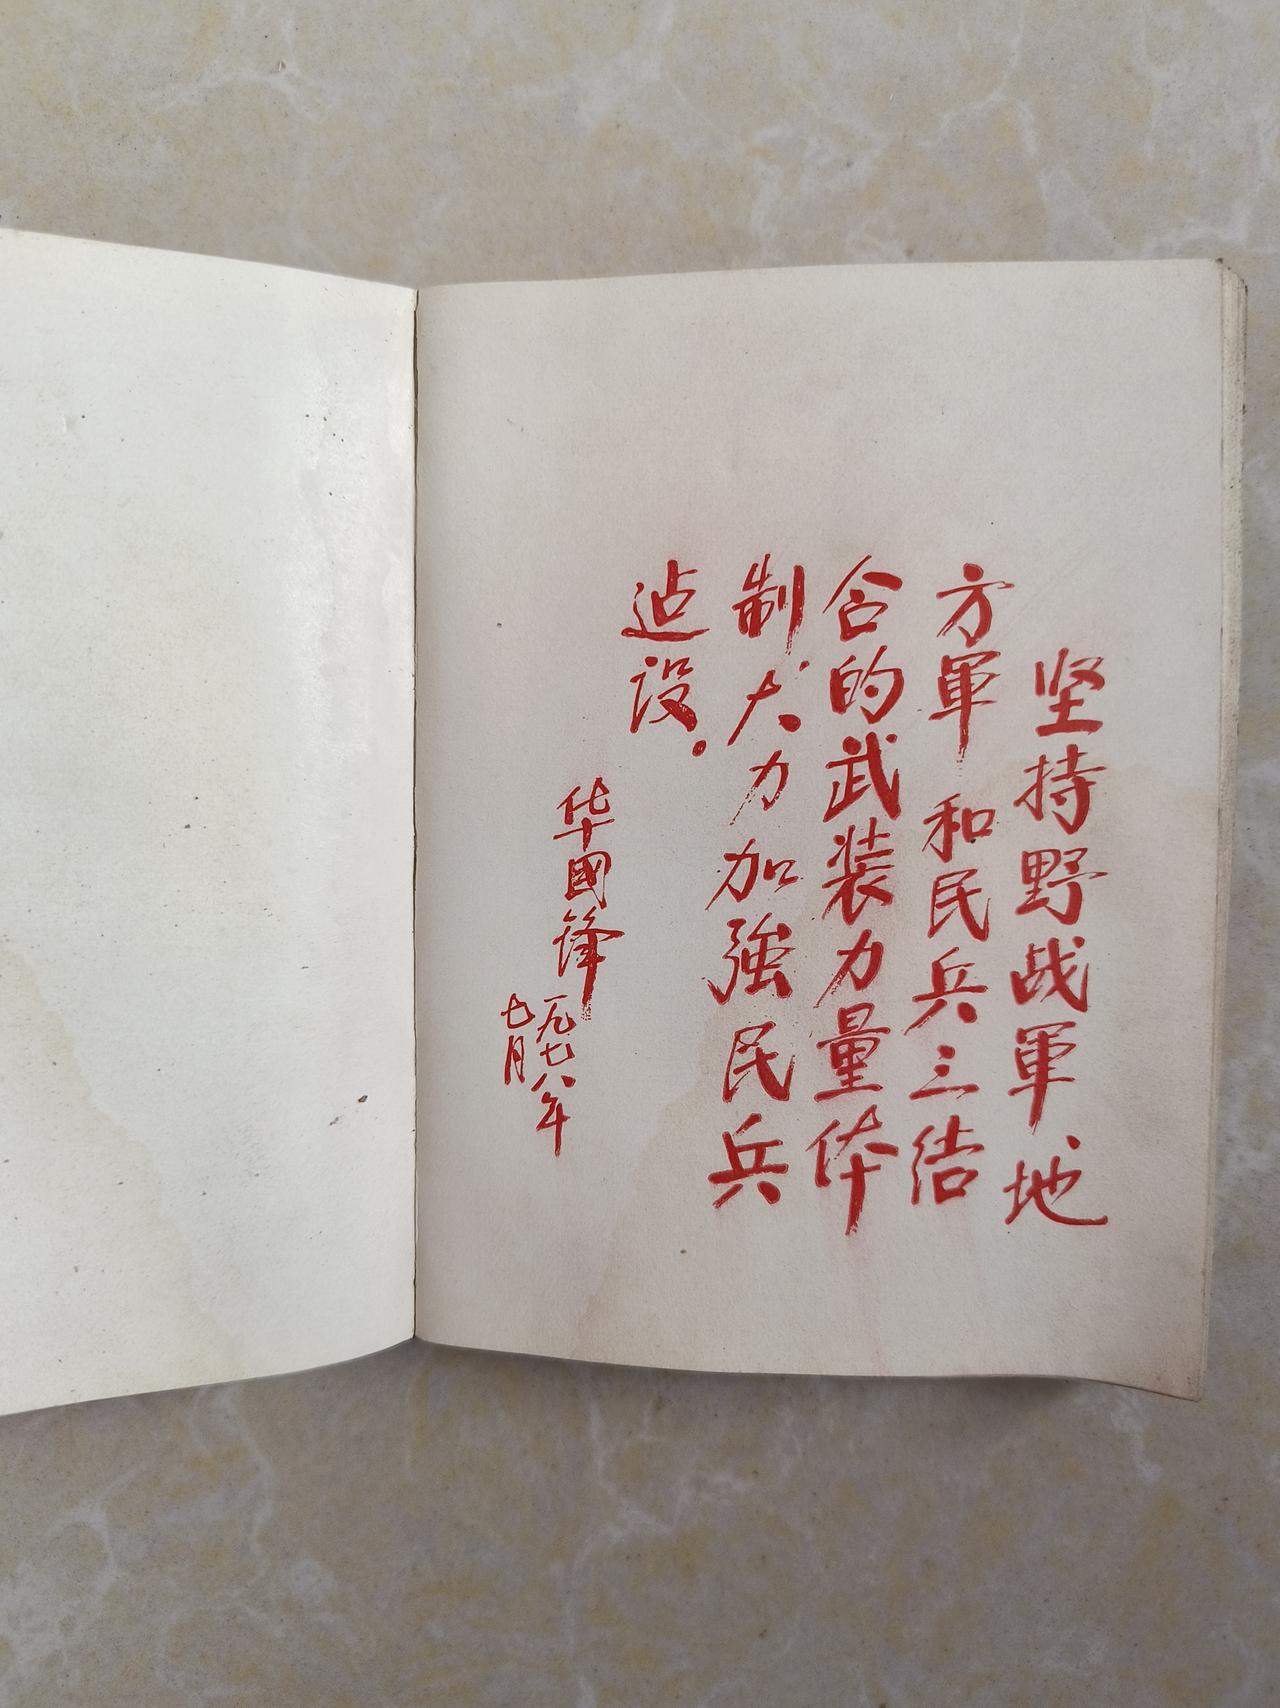 坚持野战軍、地
方軍和民兵三结
合的武装力量体
制,大力加強民兵
建设。
华國锋
一九七八年
七月